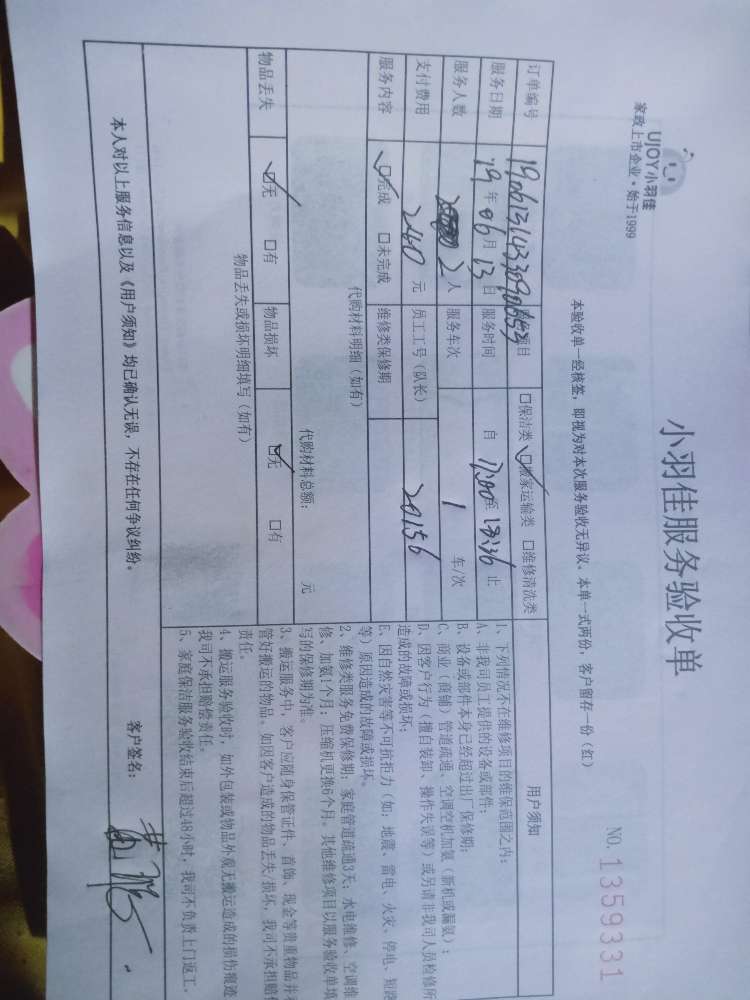 UJOY小羽佳
家政上市企业·始于1999
小羽佳服务验收单
NO. 1359331
本验收单一经核签，即视为对本次服务验收无异议、本单一式两份，客户留存一份（红）
订单编号 项目 □保洁类 ☑搬家运输类 □维修清洗类
服务日期 19年06月13日 服务时间 自 至 止
服务人数 2人 服务车次 1 车/次
支付费用 240 元 员工工号（队长） 20156
服务内容 ☑完成 □未完成 维修类保修期
代购材料明细（如有）
代购材料总额： 元
物品丢失 ☑无 □有 物品损坏 ☑无 □有
物品丢失或损坏明细填写（如有）
用户须知
1、下列情况不在维修项目的维保范围之内：
A、非我司员工提供的设备或部件；
B、设备或部件本身已经超过出厂保修期；
C、商业（商铺）管道疏通、空调空机加氨（新机或漏氨）；
D、因客户行为（擅自装卸、操作失误等）或另请非我司人员检修所
造成的故障或损坏；
E、因自然灾害等不可抗拒力（如：地震、雷电、火灾、停电、短路
等）原因造成的故障或损坏。
2、维修类服务免费保修期：家庭管道疏通3天；水电维修、空调维
修、加氨1个月；压缩机更换6个月。其他维修项目以服务验收单填
写的保修期为准。
3、搬运服务中，客户应随身保管证件、首饰、现金等贵重物品并
管好搬运的物品。如因客户造成的物品丢失/损坏，我司不承担赔
责任。
4、搬运服务验收时，如外包装或物品外观无搬运造成的损伤痕迹
我司不承担赔偿责任。
5、家庭保洁服务验收结束后超过48小时，我司不负责上门返工。
本人对以上服务信息以及《用户须知》均已确认无误，不存在任何争议纠纷。 客户签名：